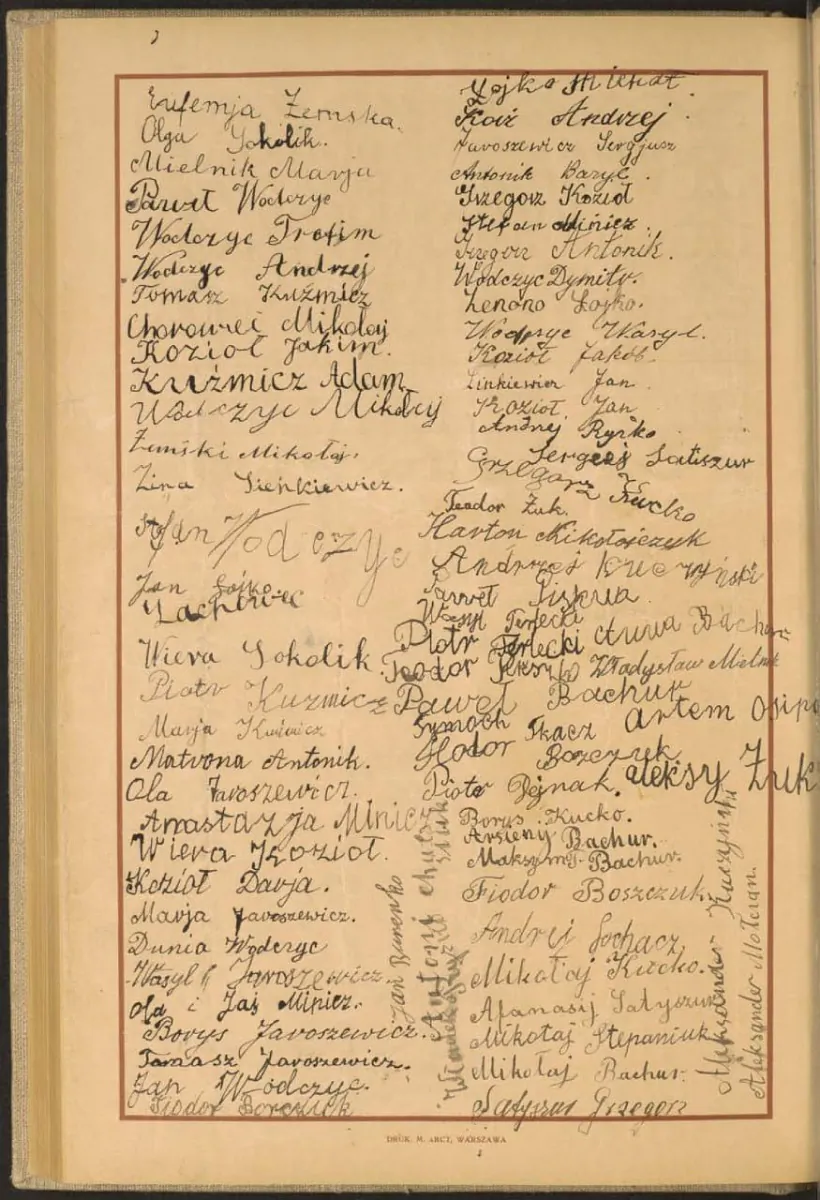 Eufemja Zemska.
Olga Sokolik.
Mielnik Marja
Paweł Wodczyc
Wodczyc Trofim
Wodczyc Andrzej
Tomasz Kuźmicz
Chorowiec Mikołaj
Kozioł Jakim.
Kuźmicz Adam
Wodczyc Mikołaj
Zemski Mikołaj.
Zina Sieńkiewicz.
Jan Wodczyc
Jan Łojko
Lachowiec
Wiera Sokolik
Piotr Kuzmicz
Marja Kuźmicz
Matrona Antonik.
Ola Jaroszewicz.
Anastazja Minicz
Wiera Kozioł.
Kozioł Darja.
Marja Jaroszewicz.
Dunia Wodczyc
Wasyl Jaroszewicz.
Ola i Jaś Minicz.
Borys Jaroszewicz.
Tomasz Jaroszewicz.
Jan Wodczyc.
Fiodor Borczuk
Łojko
Koź Andrzej
Jaroszewicz Sergjusz
Antonik Bazyl.
Grzegorz Kozioł
Stefan Minicz.
Grzegorz Antonik.
Wodczyc Dymitr.
Zenono Łojko.
Wodczyc Wasyl.
Kozioł Jakób.
Sinkiewicz Jan
Kozioł Jan
Andrej Ryżko
Sergeij Satiszur
Grzegorz Kucko
Teodor Żuk.
Hariton Mikołajczyk
Andrzej Kuczyński
Paweł Piskua
Wasyl Terlecki
Piotr Terlecki Anna Bachur
Teodor Władysław Mielnik
Paweł Bachur
Artem Osipo
Tymoch Tkacz
Hodor Bozczuk
Aleksy Żuk
Piotr Dejnak.
Borys Kucko.
Arsieny Bachur.
Maksym Bachur.
Fiodor Boszczuk.
Andrej Sochacz
Mikołaj Kucko.
Afanasij Satyszur
Mikołaj Stepaniuk
Mikołaj Bachur.
Satyszur Grzegorz
Jan Burenko
Antoni
Aleksander Kuczyński
Aleksander Mołczan.
DRUK. M. ARCT, WARSZAWA